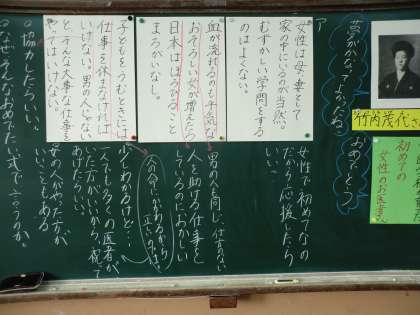 竹内茂代さん
初めての
女性のお医者さん
夢がかなってよかったね
おめでとう
ア
女性は、母、妻として
家の中にいるのが当然。
むずかしい学問をする
のはよくない。
女性で初めてなの
だから応援したら
血が流れるのも平気な
おそろしい女が増えたら
日本はほろびること
まちがいなし。
男の人も同じ
人を助ける仕事を
しているのにおかしい
子どもをうむときには
仕事を休まなければ
いけない。男の人じゃない
とそんな大事な仕事を
やってはいけない。
少しわかるけど…
一人でも多くの医者が
いた方がいいから、祝って
あげたらいい。
男の人がやった方が
いいこともある
○協力したらいい。
○なぜそんなおめでたい式で言うのか。